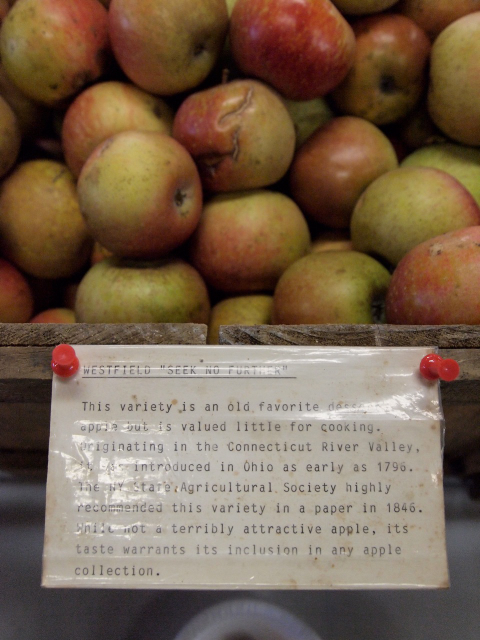 WESTFIELD "SEEK NO FURTHER"
This variety is an old favorite dessert
apple but is valued little for cooking.
Originating in the Connecticut River Valley,
it was introduced in Ohio as early as 1796.
The NY State Agricultural Society highly
recommended this variety in a paper in 1846.
While not a terribly attractive apple, its
taste warrants its inclusion in any apple
collection.